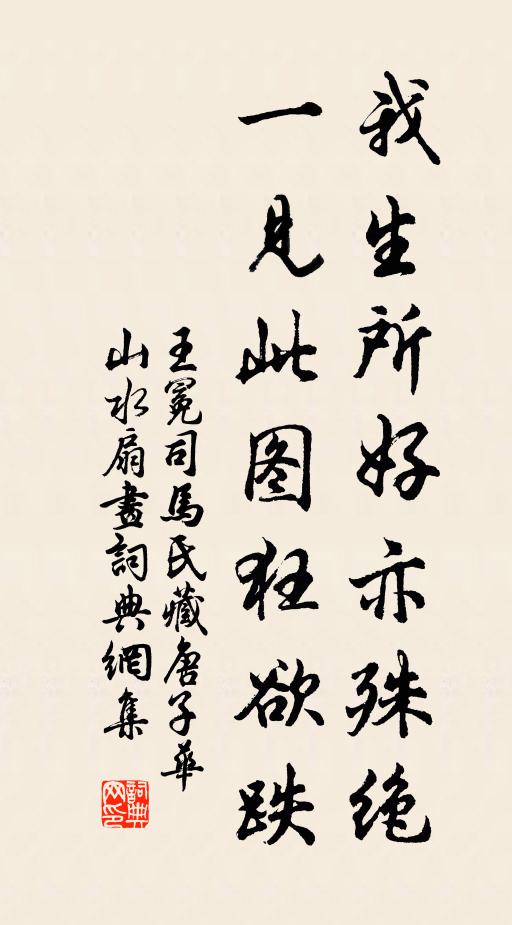 我生所好亦殊绝
一见此图狂欲跌
王冕司馬氏藏唐子華
山水扇畫詞典網集
詞典
网印